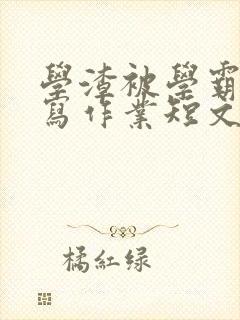 學渣被學霸
寫作業短文
橘紅绿